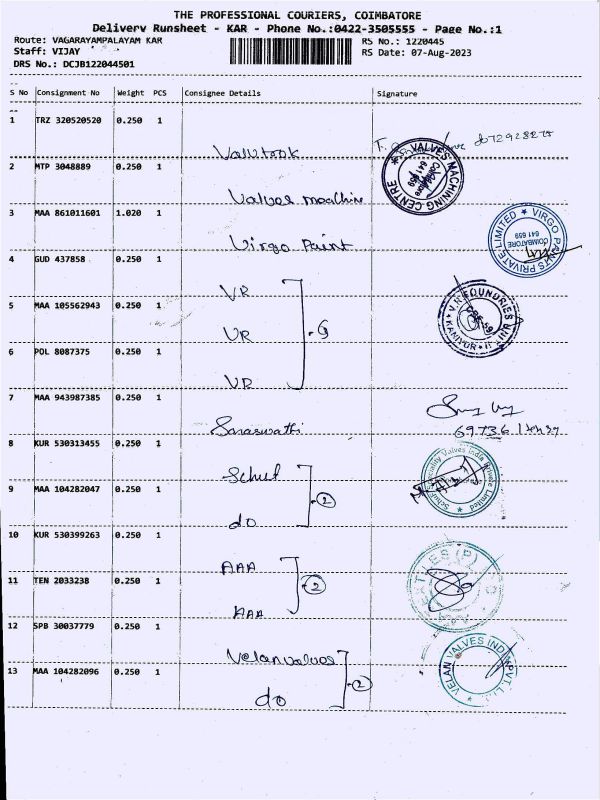 THE PROFESSIONAL COURIERS, COIMBATORE
Delivery Runsheet - KAR - Phone No.:0422-3505555 - Page No.:1
Route: VAGARAYAMPALAYAM KAR RS No.: 1220445
Staff: VIJAY RS Date: 07-Aug-2023
DRS No.: DCJB122044501
S No Consignment No Weight PCS Consignee Details Signature
1 TRZ 320520520 0.250 1
VALVES MACHINING CENTRE
2 MTP 3048889 0.250 1
Valves machine
3 MAA 861011601 1.020 1
Virgo Paint
VIRGO PRIVATE LIMITED COIMBATORE 641 659
4 GUD 437858 0.250 1
VR
5 MAA 105562943 0.250 1
VR
V.R. FOUNDRIES KANIYUR
6 POL 8087375 0.250 1
VR
7 MAA 943987385 0.250 1
Saraswathi
8 KUR 530313455 0.250 1
Schuf
Schuf Speciality Valves India Private Limited
9 MAA 104282047 0.250 1
do
2
10 KUR 530399263 0.250 1
AAA
11 TEN 2033238 0.250 1
AAA
2
12 SPB 30037779 0.250 1
Velan valves
VELAN VALVES INDIA PVT. LTD
13 MAA 104282096 0.250 1
do
2